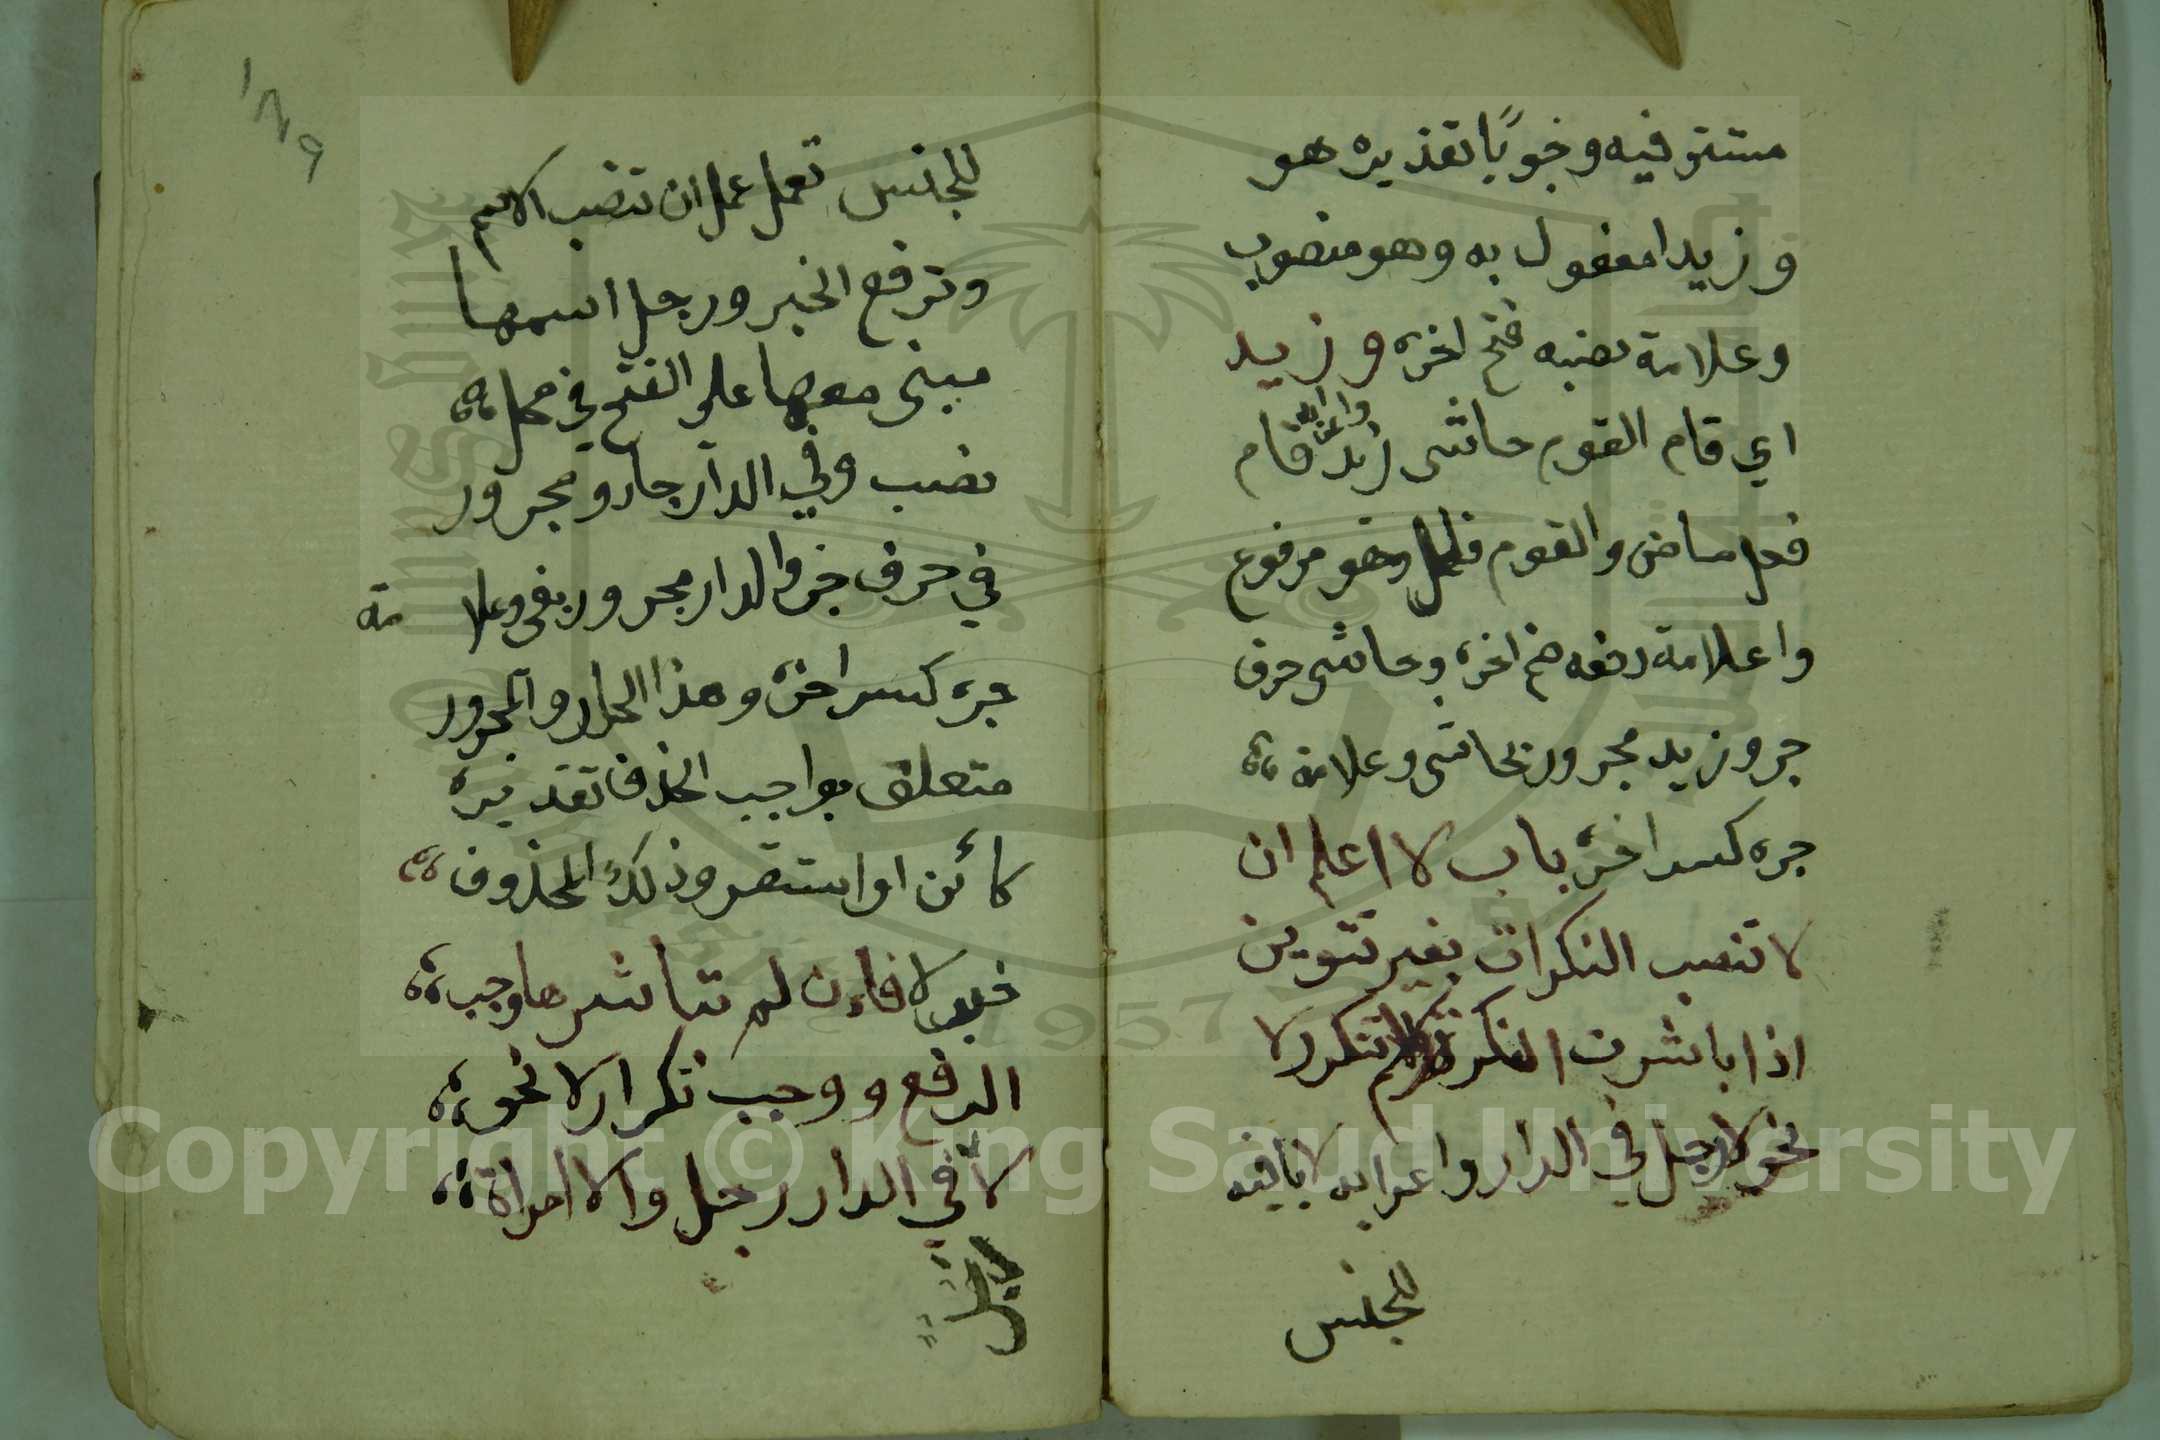 مستتر فيه وجوبًا تقذيره هو
و زيدا مفعول به وهو منصوب
وعلامة نصبه فتح اخره و زيد
اي قام القوم حاشى زيد واعرابه قام
فعل ماض والقوم فاعل وهو مرفوع
واعلامة رفعه ضم اخره وحاشى حرف
جر و زيد مجرور بحاشى وعلامة
جره كسر اخره باب لا اعلم ان
لا تنصب النكرات بغير تنوين
اذا باشرت النكرة ولم تتكرر لا
نحو لا رجل في الدار واعرابه لا نافيه
للجنس
١٢٩
للجنس تعمل عمل ان تنصب الاسم
وترفع الخبر ورجل اسمها
مبنى معها على الفتح في محل
نصب وفي الدار جار ومجرور
في حرف جر والدار مجرور بفي وعلامة
جره كسر اخره وهذا الجار والمجرور
متعلق بواجب الحذف تقذيره
كائن او استقر وذلك المحذوف
خبر لا فاءن لم تباشرها وجب
الرفع و وجب تكرار لا نحو
لا في الدار رجل والا امراة
Copyright © King Saud University
1957